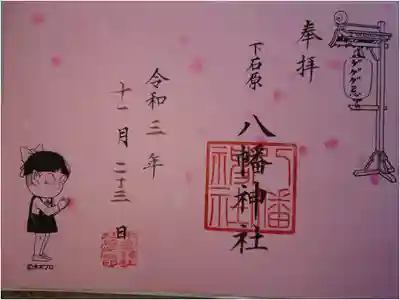 奉拝
下石原
八幡神社
八幡
神社
令和三年
十一月二十三日
©水木プロ